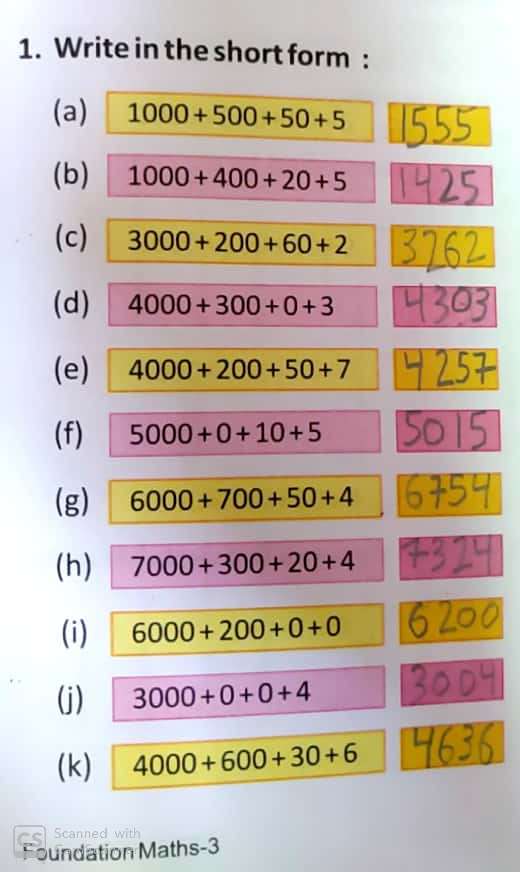 1. Write in the short form :
(a) 1000+500+50+5 1555
(b) 1000+400+20+5 1425
(c) 3000+200+60+2 3262
(d) 4000+300+0+3 4303
(e) 4000+200+50+7 4257
(f) 5000+0+10+5 5015
(g) 6000+700+50+4 6754
(h) 7000+300+20+4 7324
(i) 6000+200+0+0 6200
(j) 3000+0+0+4 3004
(k) 4000+600+30+6 4636
CS Scanned with
Foundation Maths-3